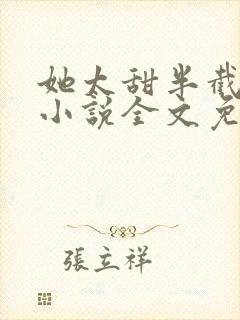 她太甜半截
小說全文免
張立祥